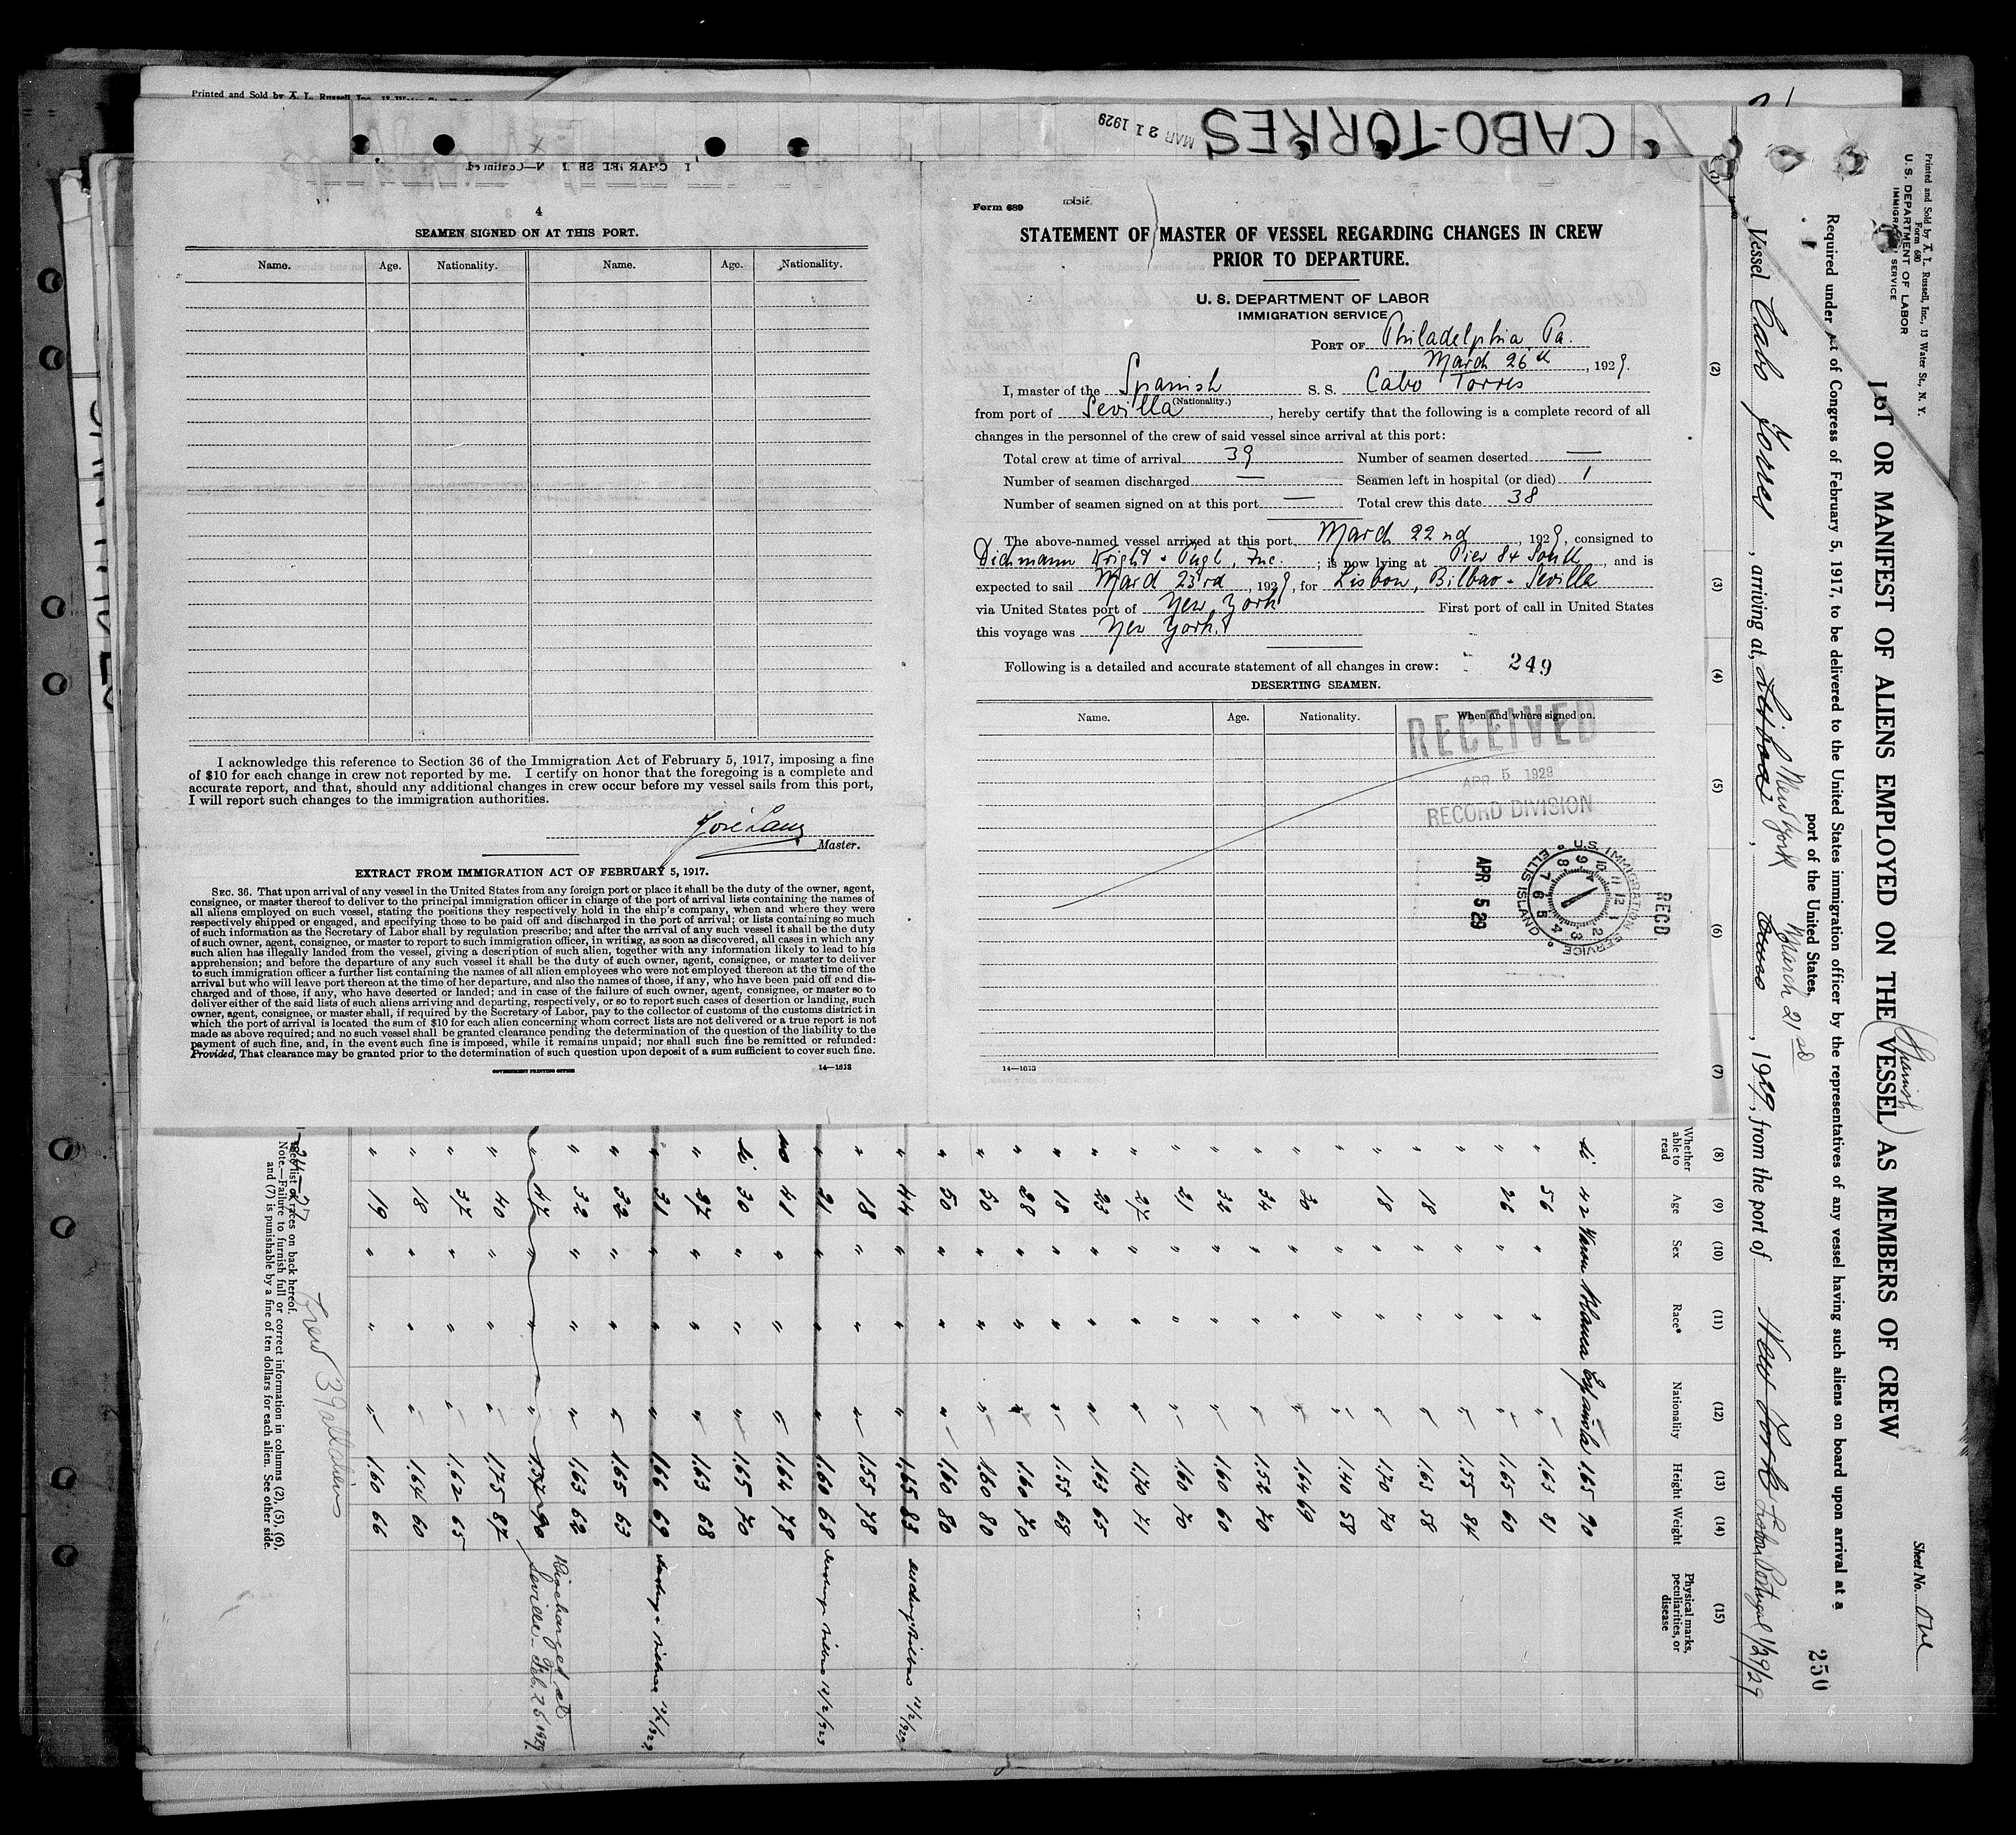 Printed and Sold by A. L. Russell, Inc., 13 Water St., N. Y.
CABO-TORRES
MAR 21 1929
4
SEAMEN SIGNED ON AT THIS PORT.
Name. Age. Nationality. Name. Age. Nationality.
I acknowledge this reference to Section 36 of the Immigration Act of February 5, 1917, imposing a fine
of $10 for each change in crew not reported by me. I certify on honor that the foregoing is a complete and
accurate report, and that, should any additional changes in crew occur before my vessel sails from this port,
I will report such changes to the immigration authorities.
Master.
EXTRACT FROM IMMIGRATION ACT OF FEBRUARY 5, 1917.
SEC. 36. That upon arrival of any vessel in the United States from any foreign port or place it shall be the duty of the owner, agent,
consignee, or master thereof to deliver to the principal immigration officer in charge of the port of arrival lists containing the names of
all aliens employed on such vessel, stating the positions they respectively hold in the ship's company, when and where they were
respectively shipped or engaged, and specifying those to be paid off and discharged in the port of arrival; or lists containing so much
of such information as the Secretary of Labor shall by regulation prescribe; and after the arrival of any such vessel it shall be the duty
of such owner, agent, consignee, or master to report to such immigration officer, in writing, as soon as discovered, all cases in which any
such alien has illegally landed from the vessel, giving a description of such alien, together with any information likely to lead to his
apprehension; and before the departure of any such vessel it shall be the duty of such owner, agent, consignee, or master to deliver
to such immigration officer a further list containing the names of all alien employees who were not employed thereon at the time of the
arrival but who will leave port thereon at the time of her departure, and also the names of those, if any, who have been paid off and dis-
charged and of those, if any, who have deserted or landed; and in case of the failure of such owner, agent, consignee, or master so to
deliver either of the said lists of such aliens arriving and departing, respectively, or so to report such cases of desertion or landing, such
owner, agent, consignee, or master shall, if required by the Secretary of Labor, pay to the collector of customs of the customs district in
which the port of arrival is located the sum of $10 for each alien concerning whom correct lists are not delivered or a true report is not
made as above required; and no such vessel shall be granted clearance pending the determination of the question of the liability to the
payment of such fine, and, in the event such fine is imposed, while it remains unpaid; nor shall such fine be remitted or refunded:
Provided, That clearance may be granted prior to the determination of such question upon deposit of a sum sufficient to cover such fine.
GOVERNMENT PRINTING OFFICE 14—1613
Form 689
STATEMENT OF MASTER OF VESSEL REGARDING CHANGES IN CREW
PRIOR TO DEPARTURE.
U. S. DEPARTMENT OF LABOR
IMMIGRATION SERVICE
PORT OF Philadelphia, Pa.
March 26th, 1929.
I, master of the Spanish S. S. Cabo Torres
(Nationality.)
from port of Sevilla, hereby certify that the following is a complete record of all
changes in the personnel of the crew of said vessel since arrival at this port:
Total crew at time of arrival 39 Number of seamen deserted —
Number of seamen discharged — Seamen left in hospital (or died) 1
Number of seamen signed on at this port — Total crew this date 38
The above-named vessel arrived at this port March 22nd, 1929, consigned to
Dichmann Wright & Pugh, Inc.; is now lying at Pier 84 South, and is
expected to sail March 23rd, 1929, for Lisbon, Bilbao - Sevilla
via United States port of New York First port of call in United States
this voyage was New York.
Following is a detailed and accurate statement of all changes in crew: 249
DESERTING SEAMEN.
Name. Age. Nationality. When and where signed on.
RECEIVED
APR 5 1929
RECORD DIVISION
RECD
U.S. IMMIGRATION SERVICE ELLIS ISLAND
APR 5 29
14—1613
Printed and Sold by A. L. Russell, Inc., 13 Water St., N. Y.
Form 680
U. S. DEPARTMENT OF LABOR
IMMIGRATION SERVICE
Sheet No. One
LIST OR MANIFEST OF ALIENS EMPLOYED ON THE VESSEL AS MEMBERS OF CREW
Spanish
Required under Act of Congress of February 5, 1917, to be delivered to the United States immigration officer by the representatives of any vessel having such aliens on board upon arrival at a
port of the United States.
250
Vessel Cabo Torres, arriving at New York March 21st, 1929, from the port of New York Lisbon Portugal 1/29/29
(2) (3) (4) (5) (6) (7)
(8) (9) (10) (11) (12) (13) (14) (15)
Whether able to read Age Sex Race* Nationality Height Weight Physical marks, peculiarities, or disease
si 42 Varon Blanca Española 1.65 90
" 56 " " " 1.63 81
" 26 " " " 1.65 60
" " " " 1.55 84
" 18 " " " 1.63 58
" 18 " " " 1.70 70
" " " " 1.40 58
" 20 " " " 1.64 69
" 34 " " " 1.52 70
" 32 " " " 1.60 60
" 21 " " " 1.60 70
" 27 " " " 1.70 71
" 23 " " " 1.63 65
" 18 " " " 1.55 68
" 28 " " " 1.60 70
" 50 " " " 1.60 80
" 50 " " " 1.60 80
" 44 " " " 1.65 83
" 18 " " " 1.55 78
" 21 " " " 1.60 68
no 41 " " " 1.64 78
si 30 " " " 1.65 70
" 27 " " " 1.63 68
" 31 " " " 1.66 69
" 32 " " " 1.65 63
" 32 " " " 1.63 62
" 47 " " " 1.57 90 Discharged at Seville - Feb. 26 1929
" 40 " " " 1.75 87
" 37 " " " 1.62 65
" 18 " " " 1.64 60
" 19 " " " 1.60 66
Crew 39 all aliens
See list of races on back hereof.
Note.—Failure to furnish full or correct information in columns (2), (5), (6),
and (7) is punishable by a fine of ten dollars for each alien. See other side.